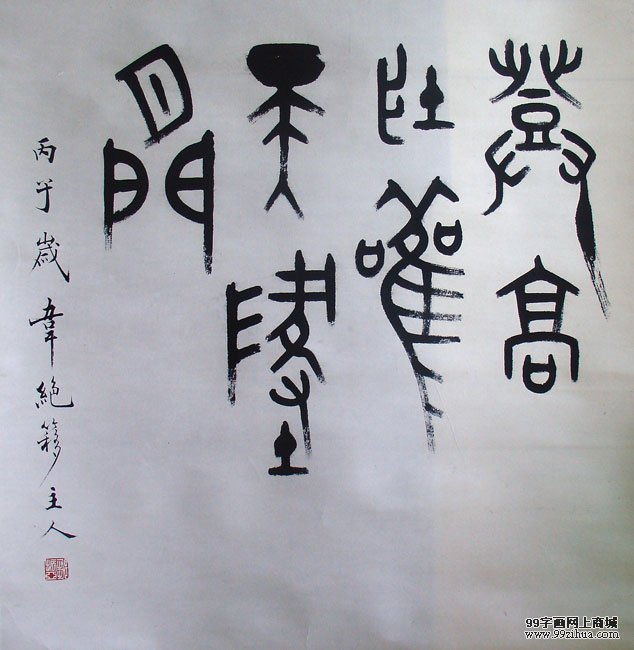 登高
壯觀
天地
間
丙子歲韋絕簃主人
99字画网上商城
www.99zihua.com